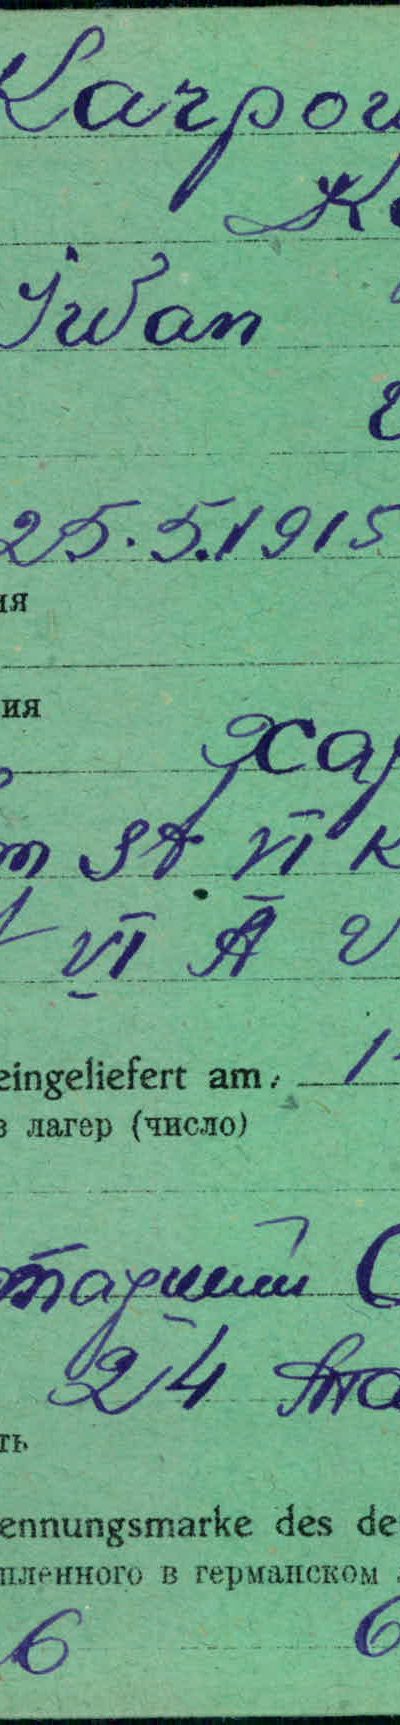 Karpow
K
Iwan
25.5.1915
ия
ия
Хар
St VI K
VI A
eingeliefert am: 1
в лагер (число)
старший С
24
ть
ennungsmarke des de
пленного в германском
6 6